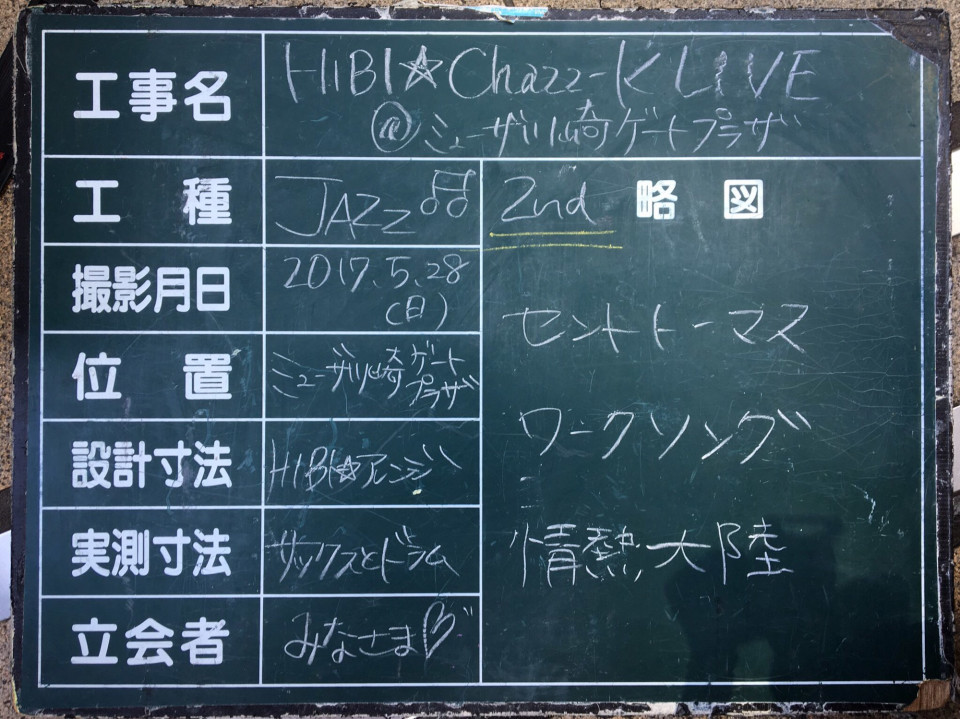 工事名 HIBI☆Chazz-K LIVE
@ミューザ川崎ゲートプラザ
工種 JAZZ♫
撮影月日 2017.5.28
(日)
位置 ミューザ川崎ゲート
プラザ
設計寸法 HIBI☆アンジ
実測寸法 サックスとドラム
立会者 みなさま♡
2nd 略図
セントトーマス
ワークソング
情熱大陸